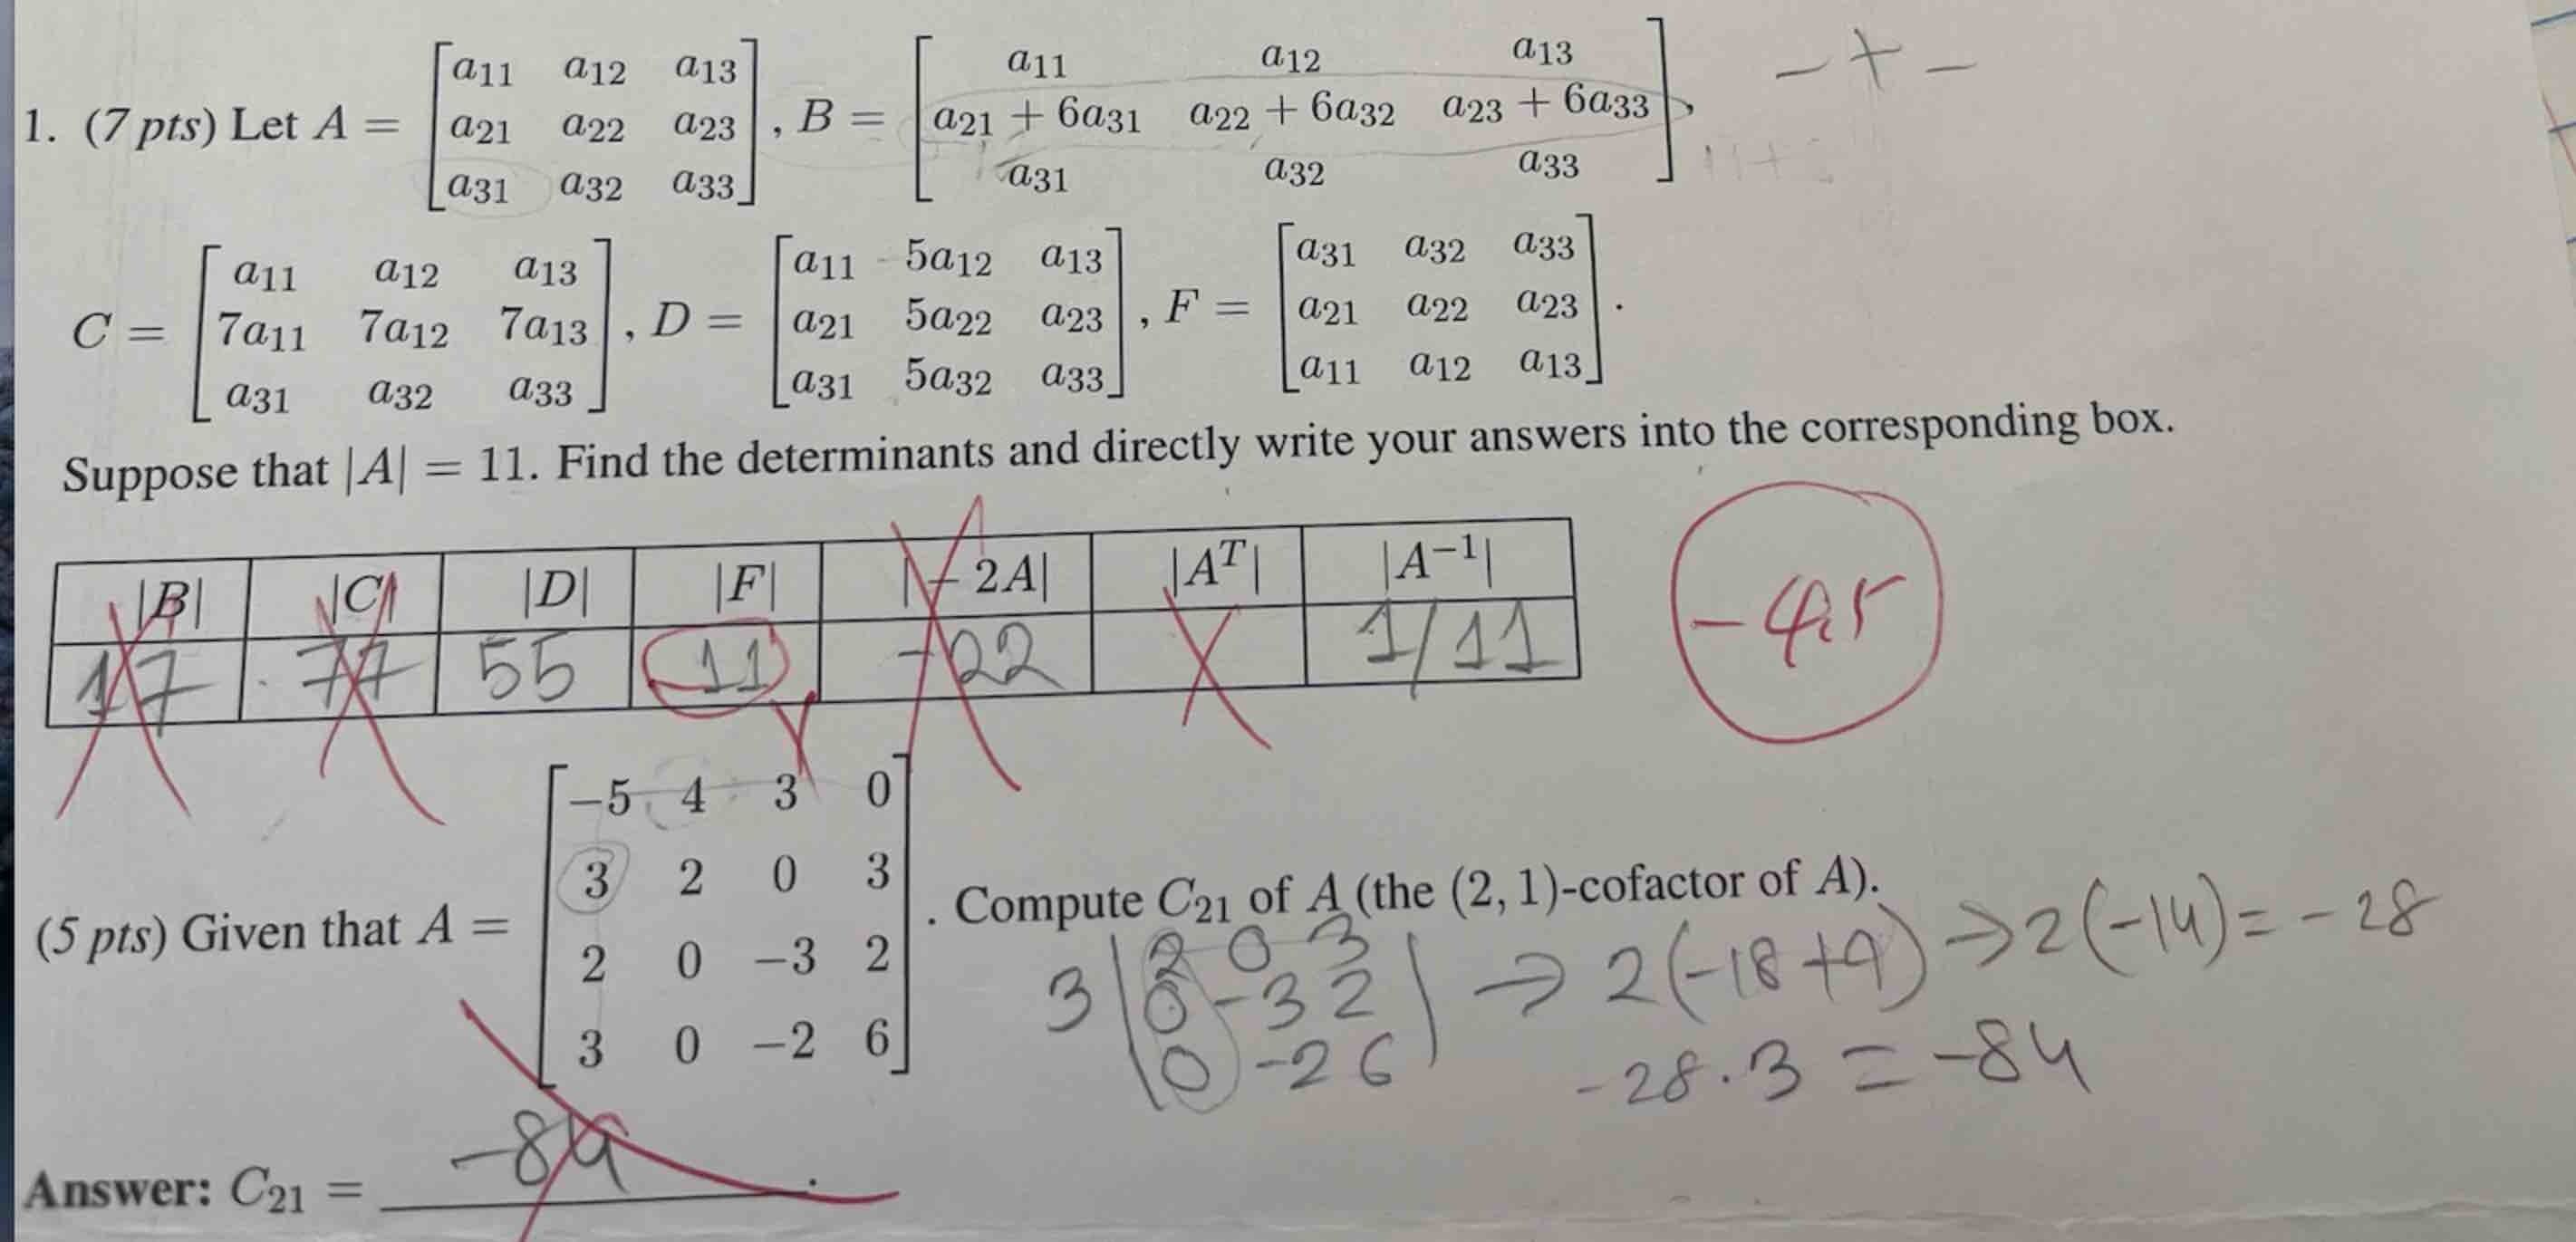 1. (7 pts) Let A = [a11 a12 a13; a21 a22 a23; a31 a32 a33], B = [a11 a12 a13; a21 + 6a31 a22 + 6a32 a23 + 6a33; a31 a32 a33], − + −
C = [a11 a12 a13; 7a11 7a12 7a13; a31 a32 a33], D = [a11 5a12 a13; a21 5a22 a23; a31 5a32 a33], F = [a31 a32 a33; a21 a22 a23; a11 a12 a13].
Suppose that |A| = 11. Find the determinants and directly write your answers into the corresponding box.
|B| |C| |D| |F| |− 2A| |A^T| |A^−1|
17 77 55 11 −22 1/11
(5 pts) Given that A = [−5 4 3 0; 3 2 0 3; 2 0 −3 2; 3 0 −2 6]. Compute C21 of A (the (2, 1)-cofactor of A).
3 |2 0 3; 0 −3 2; 0 −2 6| → 2(−18+4) → 2(−14) = −28
−28 . 3 = −84
Answer: C21 = −84.